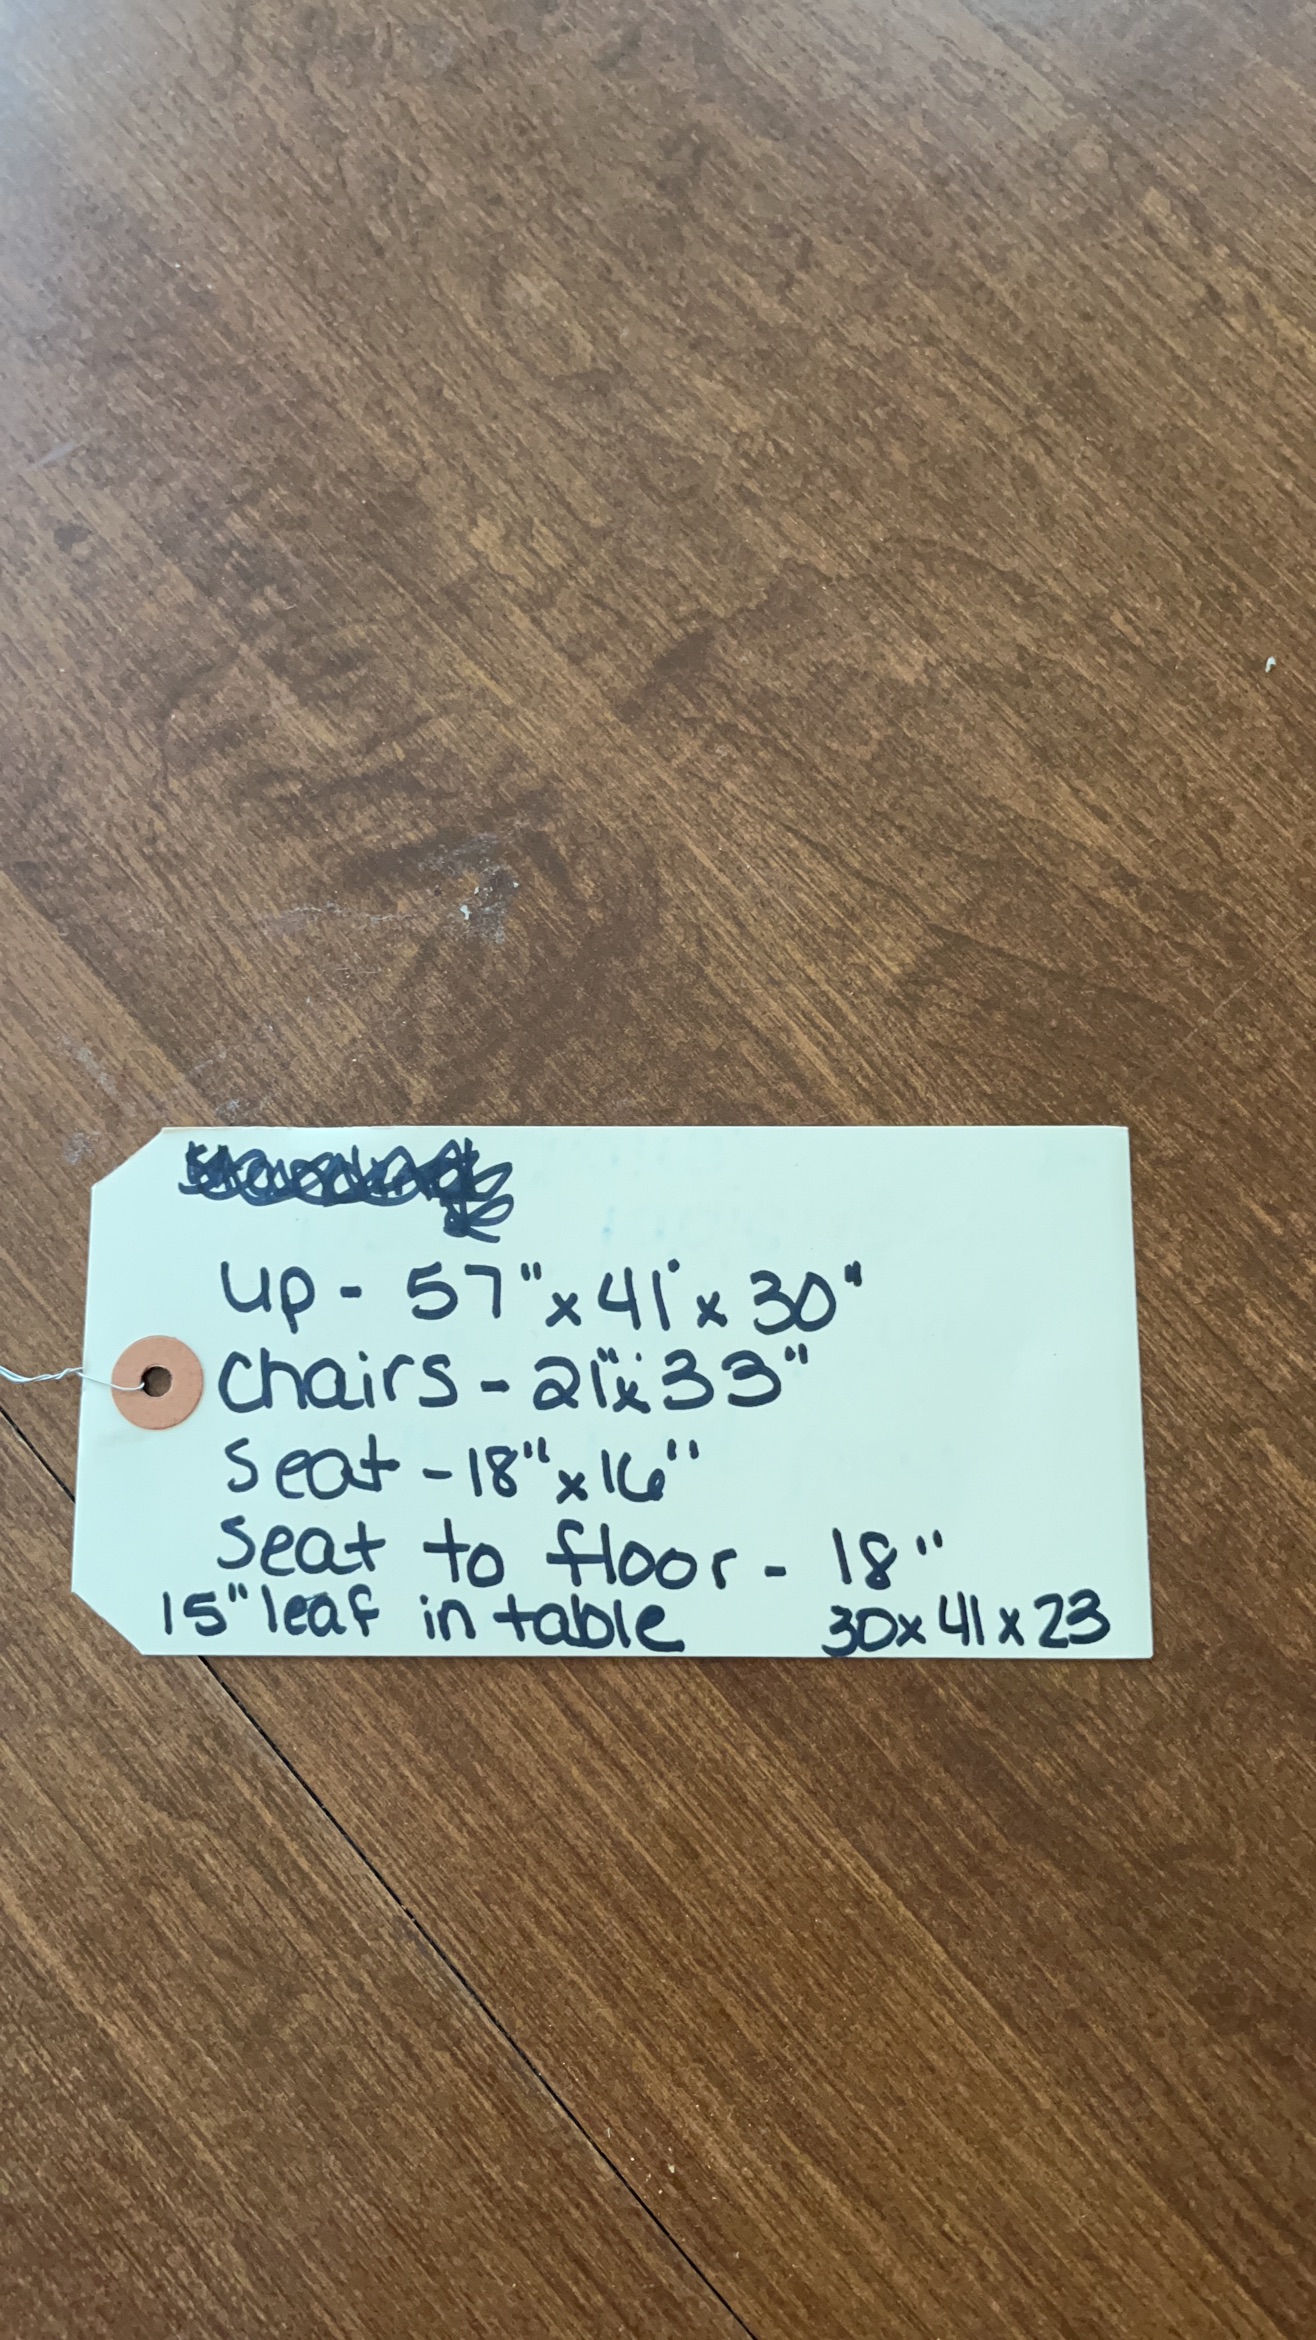 up - 57" x 41" x 30"
Chairs - 21" x 33"
Seat - 18" x 16"
Seat to floor - 18"
15" leaf in table 30 x 41 x 23